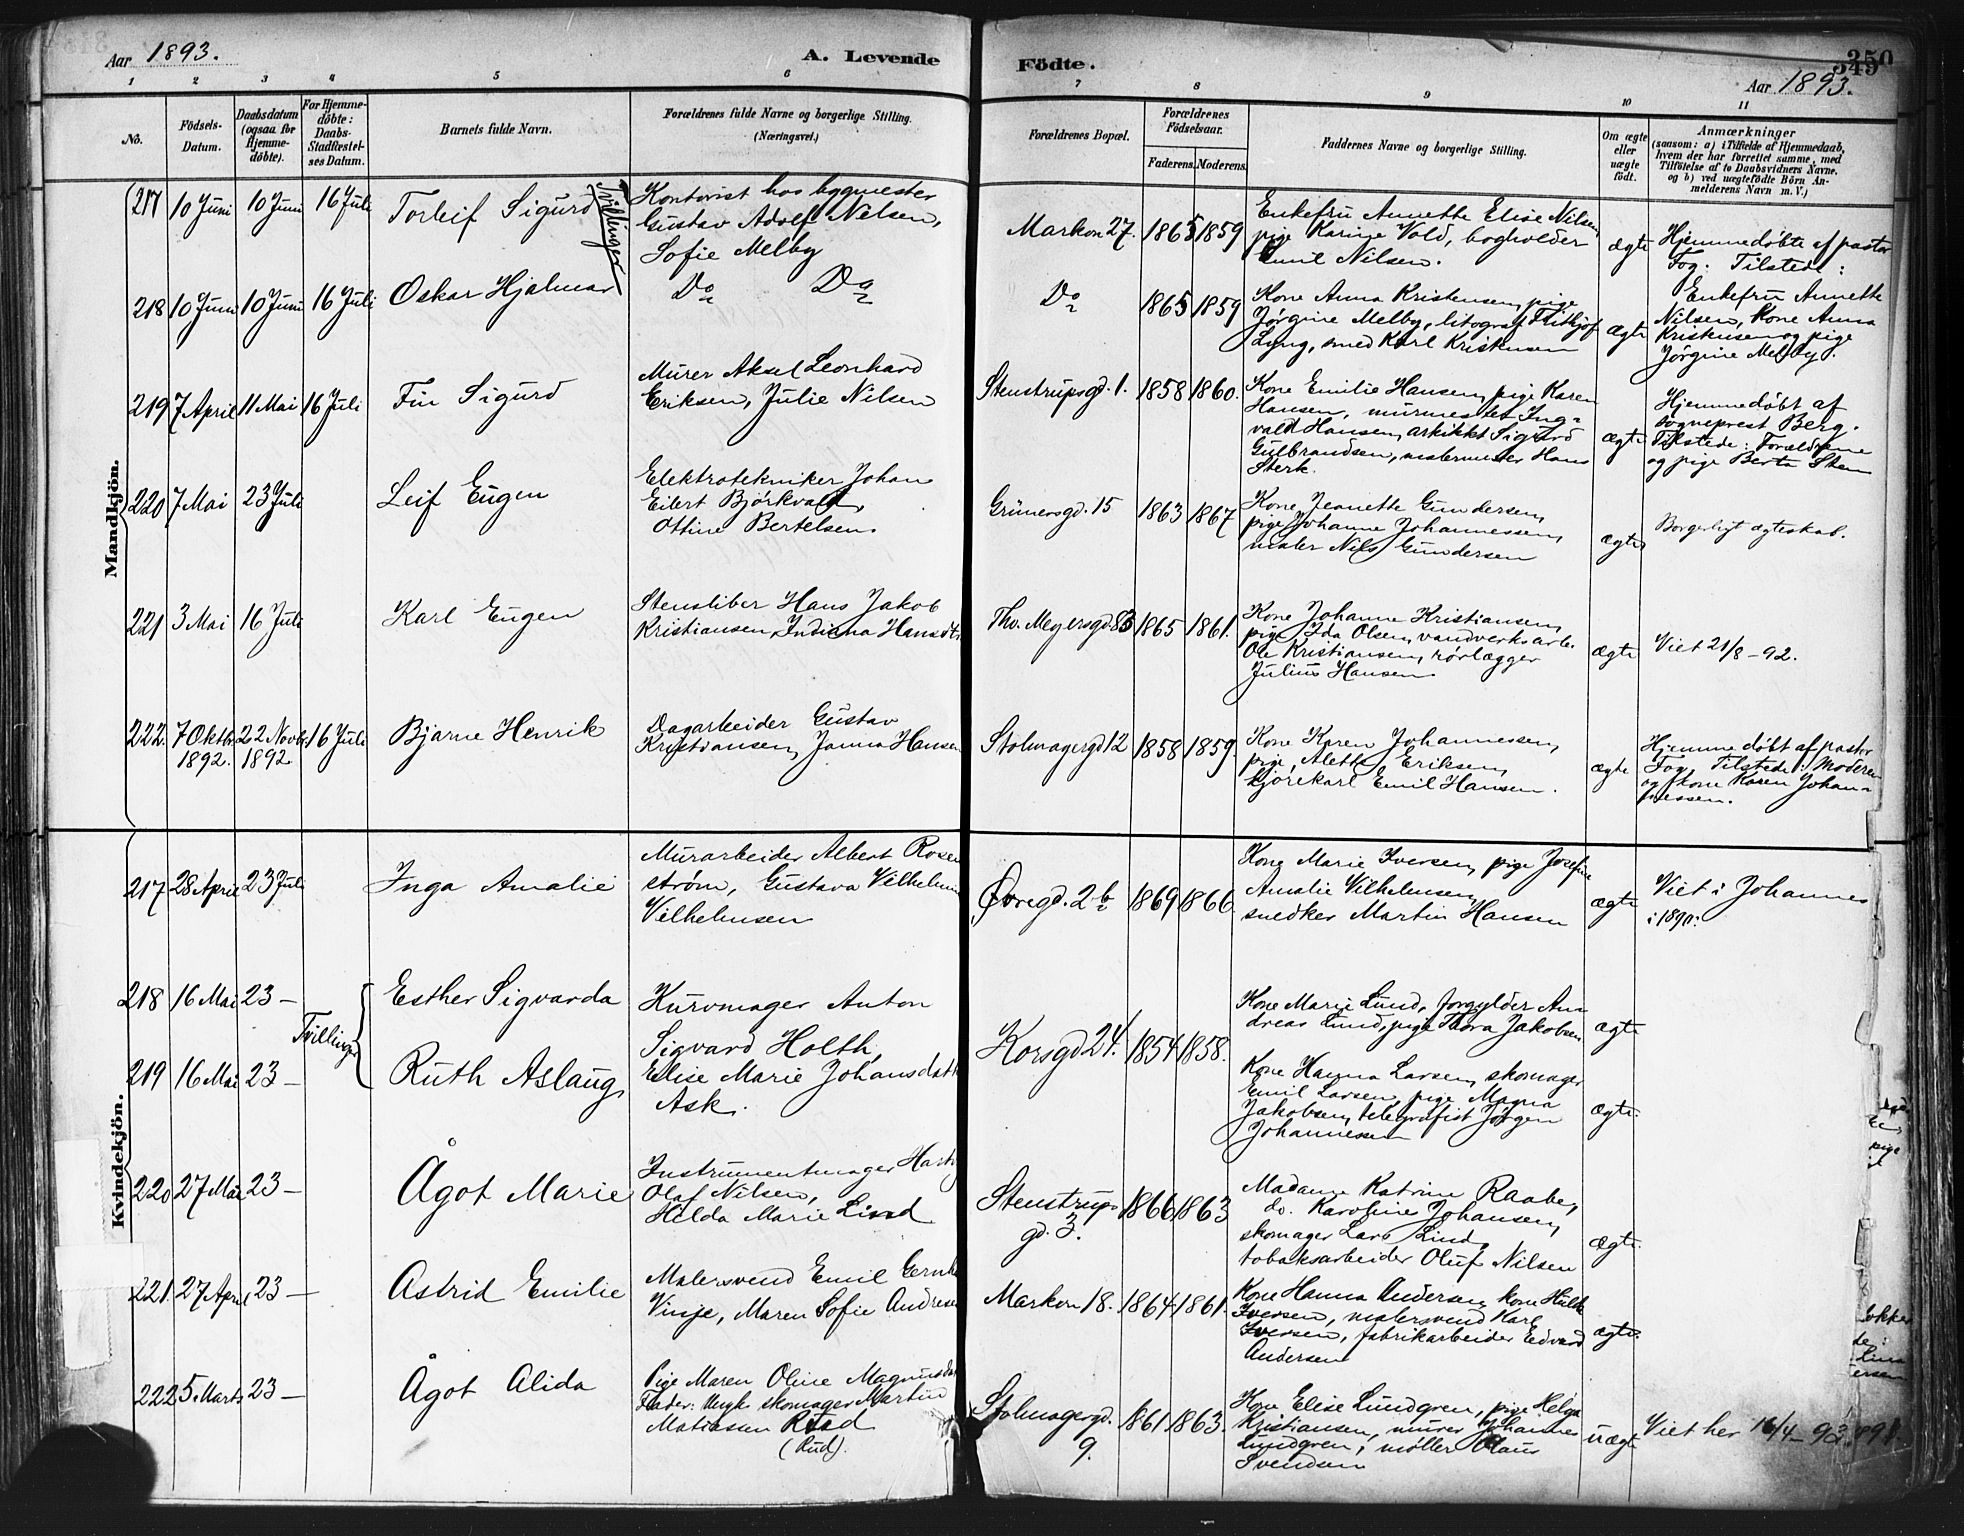 Aar 1893.
A. Levende
Födte.
350
Aar 1893.
1 2 3 4 5 6 7 8 9 10 11
No.
Födsels-
Datum.
Daabsdatum
(ogsaa for
Hjemme-
døbte).
For Hjemme-
døbte:
Daabs-
Stadfæstel-
ses Datum.
Barnets fulde Navn.
Forældrenes fulde Navne og borgerlige Stilling.
(Næringsvei.)
Forældrenes Bopæl.
Forældrenes
Födselsaar.
Faderens. Moderens.
Faddernes Navne og borgerlige Stilling.
Om ægte
eller
uægte
født.
Anmærkninger
(saasom: a) i Tilfælde af Hjemmedaab,
hvem der har forrettet samme, med
Tilföielse af to Daabsvidners Navne,
og b) ved uægtefödte Börn An-
melderens Navn m. V.)
Mandkjön.
217 10 Juni 10 Juni 16 Juli Torleif Sigurd
Tvillinger
Kontorist hos bygmester
Gustav Adolf Nilsen,
Sofie Melby
Markon 27. 1865 1859
Enkefru Annette Elise Nilsen
pige Karine Vold, bogholder
Emil Nilsen.
ægte
Hjemmedøbte af pastor
Fog. Tilstede:
Enkefru Annette
Nilsen, Kone Anna
Kristensen og pige
Jørgine Melby.
218 10 Juni 10 Juni 16 Juli Oskar Hjalmar
Do Do
Do 1865 1859
Kone Anna Kristensen, pige
Jørgine Melby, litograf Fritjof
Lyng, smed Karl Kristensen
ægte
219 7 April 11 Mai 16 Juli Fin Sigurd
Murer Aksel Leonhard
Eriksen, Julie Nilsen
Stenstrupsgd. 1. 1858 1860.
Kone Emilie Hansen, pige Karen
Hansen, murmester Ing-
vald Hansen, arkitekt Sigurd
Gulbrandsen, malermester Hans
Sterk.
ægte
Hjemmedøbt af
sogneprest Berg.
Tilstede: Forældrene
og pige Berta Sten
220 7 Mai 23 Juli Leif Eugen
Elektrotekniker Johan
Eilert Bjørkvald,
Ottine Bertelsen.
Grünersgd. 15 1863 1867
Kone Jeanette Gundersen,
pige Johanne Johannessen,
maler Nils Gundersen
ægte
Borgerligt ægteskab.
221 3 Mai 16 Juli Karl Eugen
Stensliber Hans Jakob
Kristiansen, Indiana Hansdtr
Th. Meyersgd. 83 1865 1861.
Kone Johanne Kristiansen,
pige Ida Olsen, vandverksarb.
Ole Kristiansen, rørlægger
Julius Hansen.
ægte
Viet 21/8 - 92.
222. 7 Oktbr 1892. 22 Novbr. 1892. 16 Juli Bjarne Henrik
Dagarbeider Gustav
Kristiansen, Janna Hansen
Stolmagergd 12 1858 1859.
Kone Karen Johannessen,
pige Alette Eriksen,
kjørekarl Emil Hansen.
ægte
Hjemmedøbt af pastor
Fog. Tilstede: Moderen
og kone Karen Johan-
nessen.
Kvindekjön.
217 28 April 23 Juli Inga Amalie
Murarbeider Albert Rosen
strøm, Gustava Vilhelmine
Vilhelmsen
Øvregd. 2 b 1869 1866
Kone Marie Iversen, pige Josefine
Amalie Vilhelmsen,
snedker Martin Hansen
ægte
Viet i Johannes
i 1890.
218 16 Mai 23 - Esther Sigvarda
Tvillinger
Kurvmager Anton
Sigvard Holth,
Elise Marie Johansdatter
Ask.
Korsgd 24. 1854 1858.
Kone Marie Lund, forgylder An-
dreas Lund, pige Thora Jakobsen
ægte
219 16 Mai 23 - Ruth Aslaug
Kone Hanna Larsen, skomager
Emil Larsen, pige Magna
Jakobsen, telegrafist Jørgen
Johannessen
ægte.
220 27 Mai 23 - Ågot Marie
Instrumentmager Hartvig
Olaf Nilsen,
Hilda Marie Lind
Stenstrups-
gd. 3. 1866 1863
Madame Katrine Raabe,
do. Karoline Johansen,
skomager Lars Lind,
tobaksarbeider Oluf Nilsen
ægte.
221. 27 April 23 - Astrid Emilie
Malersvend Emil
Vinje, Maren Sofie Andresen
Markon 18. 1864 1861.
Kone Hanna Andersen, kone Hulda
Iversen, malersvend Karl
Iversen, fabrikarbeider Edvard
Andersen
ægte.
222 5 Marts 23 - Ågot Alida
Pige Maren Oline Magnusdatter
Fader: Ungk. skomager Martin
Matiassen Rud
(Rud).
Stolmagergd.
9. 1861 1863.
Kone Elise Lundgren, pige Helga
Kristiansen, murer Johannes
Lundgren, møller Olaus
Svendsen
uægte
Viet her 16/4 - 93.